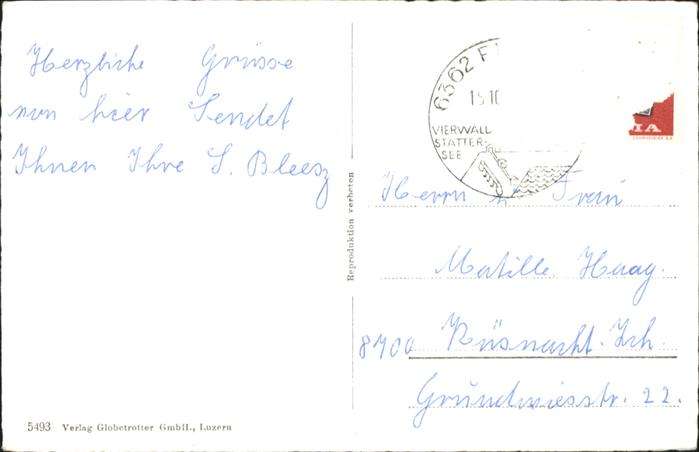 Herzliche Grüsse
von hier Sendet
Ihnen Ihre S. Bleesz
5493 Verlag Globetrotter GmbH., Luzern
Reproduktion verboten
6362 F
15.10
VIERWALD
STÄTTER-
SEE
IA
Herrn u. Frau
Matille Haag.
8700 Küsnacht. Zch
Grundwiesstr. 22.